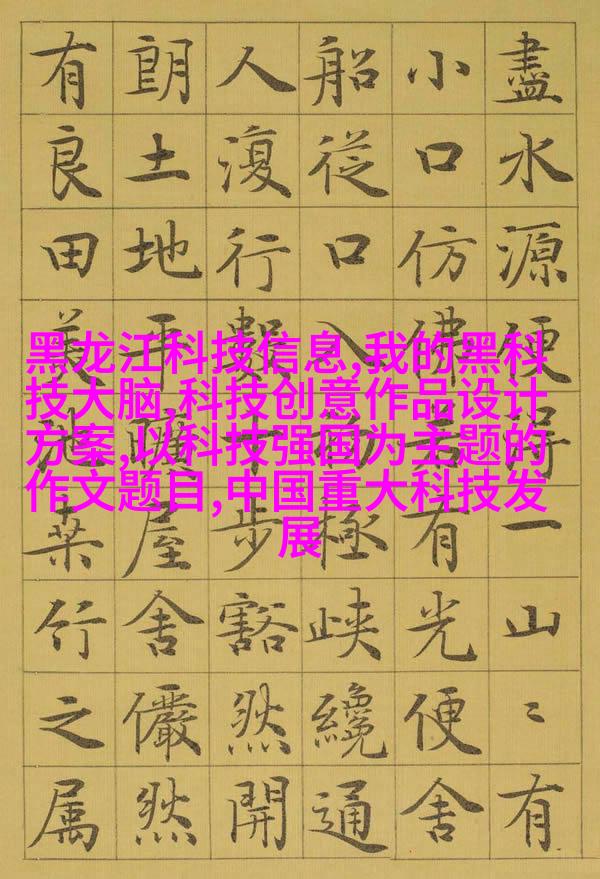 盡水源便得一山〻有
小口仿佛若有光便舍
船從口入初極峽纔通
人復行數十步豁然開
朗土地平曠屋舍儼然
有良田美池桑竹之属
黑龙江科技信息,我的黑科
技大脑,科技创意作品设计
方案,以科技强国为主题的
作文题目,中国重大科技发
展